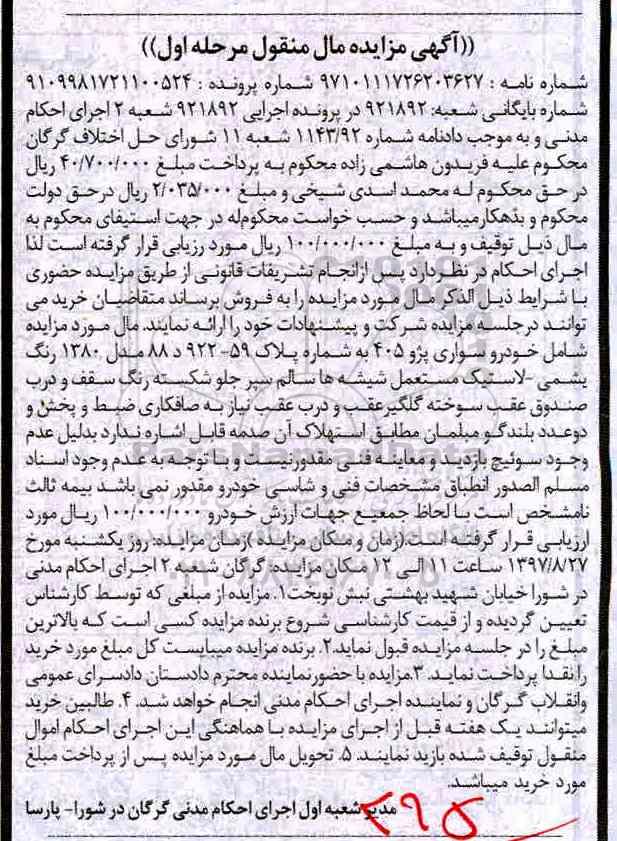 ((آگهی مزایده مال منقول مرحله اول))
شماره نامه : ۹۷۱۰۱۱۱۷۲۶۲۰۳۶۲۷ شماره پرونده : ۹۱۰۹۹۸۱۷۲۱۱۰۰۵۲۴
شماره بایگانی شعبه: ۹۲۱۸۹۲ در پرونده اجرایی ۹۲۱۸۹۲ شعبه ۲ اجرای احکام
مدنی و به موجب دادنامه شماره ۱۱۴۳/۹۲ شعبه ۱۱ شورای حل اختلاف گرگان
محکوم علیه فریدون هاشمی زاده محکوم به پرداخت مبلغ ۴۰/۷۰۰/۰۰۰ ریال
در حق محکوم له محمد اسدی شیخی و مبلغ ۲/۰۳۵/۰۰۰ ریال درحق دولت
محکوم و بدهکارمیباشد و حسب خواست محکوم‌له در جهت استیفای محکوم به
مال ذیل توقیف و به مبلغ ۱۰۰/۰۰۰/۰۰۰ ریال مورد رزیابی قرار گرفته است لذا
اجرای احکام در نظردارد پس ازانجام تشریفات قانونی از طریق مزایده حضوری
با شرایط ذیل الذکر مال مورد مزایده را به فروش برساند متقاضیان خرید می
توانند درجلسه مزایده شرکت و پیشنهادات خود را ارائه نمایند. مال مورد مزایده
شامل خودرو سواری پژو ۴۰۵ به شماره پلاک ۵۹- ۹۲۲ د ۸۸ مدل ۱۳۸۰ رنگ
یشمی -لاستیک مستعمل شیشه ها سالم سپر جلو شکسته رنگ سقف و درب
صندوق عقب سوخته گلگیرعقب و درب عقب نیاز به صافکاری ضبط و پخش و
دوعدد بلندگو مبلمان مطابق استهلاک آن صدمه قابل اشاره ندارد بدلیل عدم
وجود سوئیچ بازدید و معاینه فنی مقدورنیست و با توجه به عدم وجود اسناد
مسلم الصدور انطباق مشخصات فنی و شاسی خودرو مقدور نمی باشد بیمه ثالث
نامشخص است با لحاظ جمعیع جهات ارزش خودرو ۱۰۰/۰۰۰/۰۰۰ ریال مورد
ارزیابی قرار گرفته است(زمان و مکان مزایده )زمان مزایده: روز یکشنبه مورخ
۱۳۹۷/۸/۲۷ ساعت ۱۱ الی ۱۲ مکان مزایده: گرگان شعبه ۲ اجرای احکام مدنی
در شورا خیابان شهید بهشتی نبش نوبخت۱. مزایده از مبلغی که توسط کارشناس
تعیین گردیده و از قیمت کارشناسی شروع برنده مزایده کسی است که بالاترین
مبلغ را در جلسه مزایده قبول نماید.۲. برنده مزایده میبایست کل مبلغ مورد خرید
را نقدا پرداخت نماید. ۳.مزایده با حضورنماینده محترم دادستان دادسرای عمومی
وانقلاب گرگان و نماینده اجرای احکام مدنی انجام خواهد شد. ۴. طالبین خرید
میتوانند یک هفته قبل از اجرای مزایده با هماهنگی این اجرای احکام اموال
منقول توقیف شده بازید نمایند. ۵. تحویل مال مورد مزایده پس از پرداخت مبلغ
مورد خرید میباشد.
مدیر شعبه اول اجرای احکام مدنی گرگان در شورا- پارسا